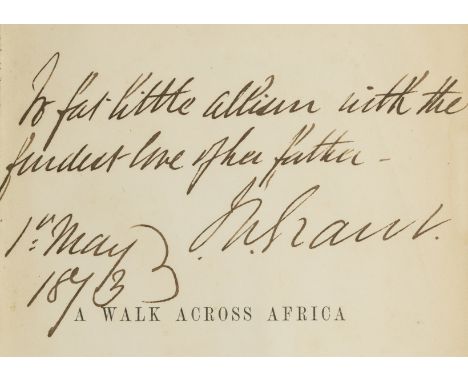 To fat little alison with the
fondest love of her father -
J.A. Grant.
1st May
1873
A WALK ACROSS AFRICA